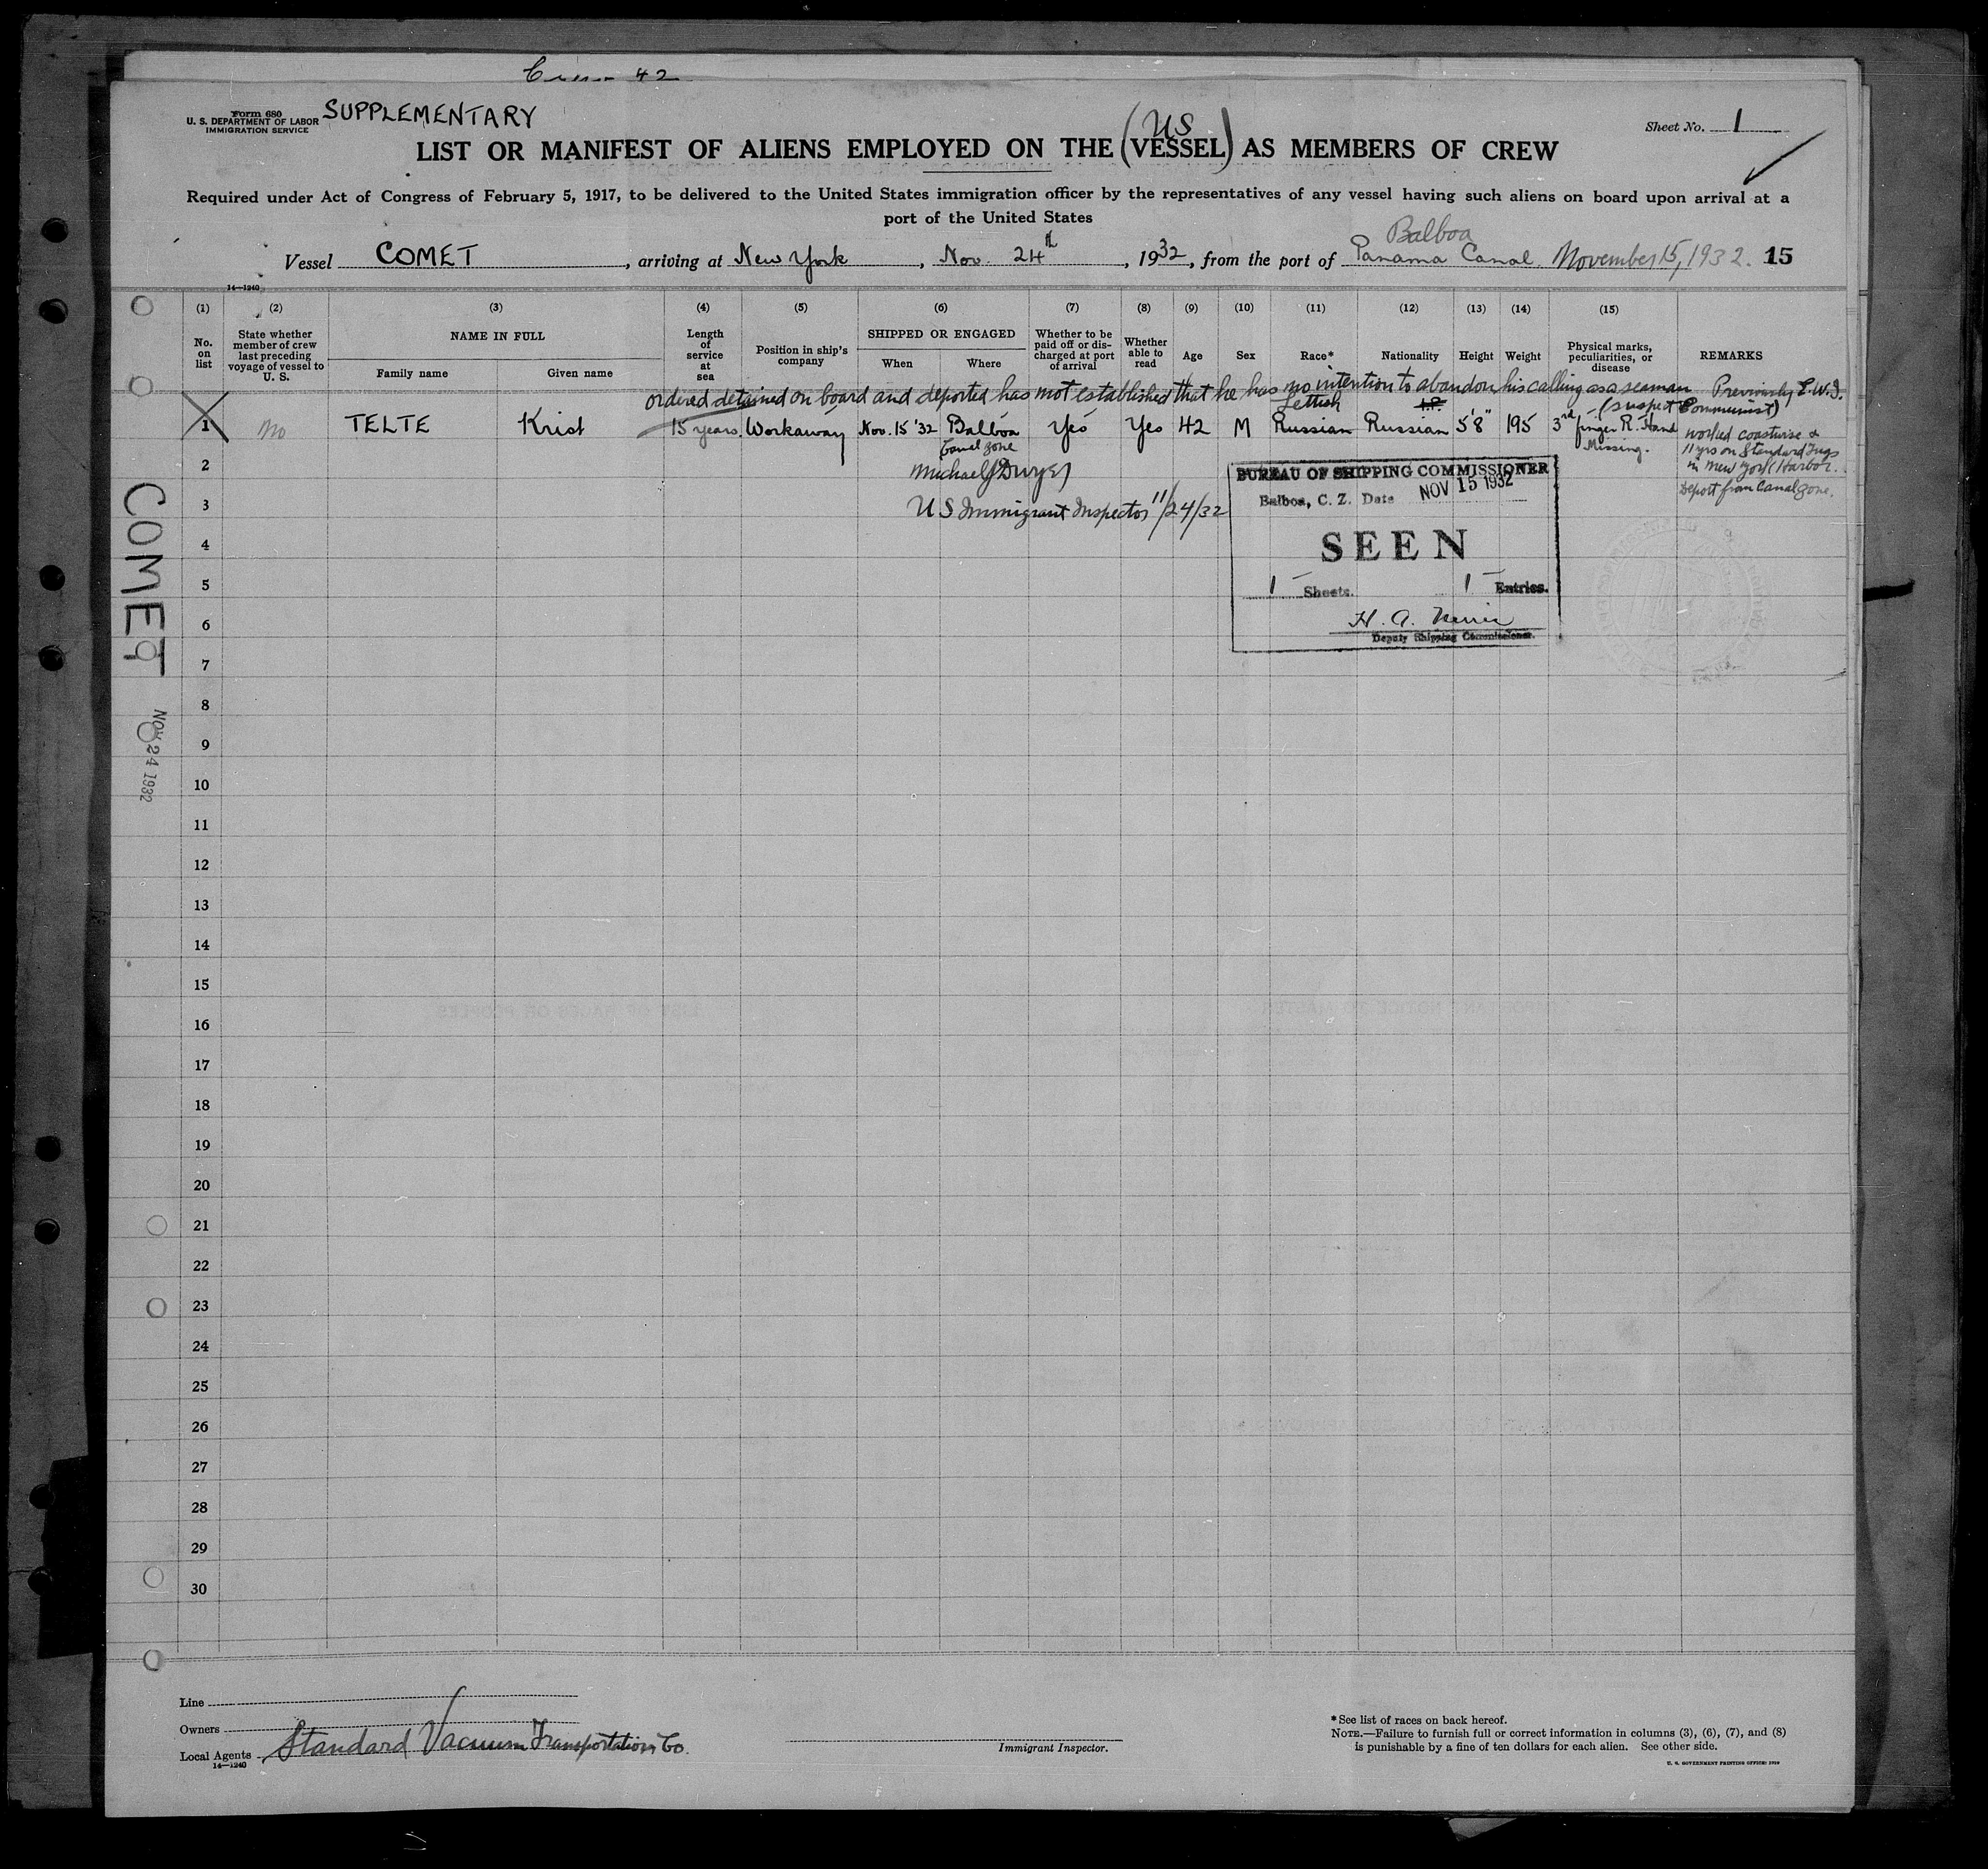 Form 680
U. S. DEPARTMENT OF LABOR
IMMIGRATION SERVICE
SUPPLEMENTARY
Sheet No. 1
US
LIST OR MANIFEST OF ALIENS EMPLOYED ON THE (VESSEL) AS MEMBERS OF CREW
Required under Act of Congress of February 5, 1917, to be delivered to the United States immigration officer by the representatives of any vessel having such aliens on board upon arrival at a
port of the United States
Balboa
Vessel COMET, arriving at New York, Nov. 24th, 1932, from the port of Panama Canal November 15, 1932. 15
14—1240
(1) (2) (3) (4) (5) (6) (7) (8) (9) (10) (11) (12) (13) (14) (15)
No. on list
State whether member of crew last preceding voyage of vessel to U. S.
NAME IN FULL
Family name Given name
Length of service at sea
Position in ship's company
SHIPPED OR ENGAGED
When Where
Whether to be paid off or discharged at port of arrival
Whether able to read
Age
Sex
Race*
Nationality
Height
Weight
Physical marks, peculiarities, or disease
REMARKS
ordered detained on board and deported has not established that he has no intention to abandon his calling as a seaman
Previously E.W.I.
Lettish
(suspect Communist)
1 No TELTE Krist 15 years Workaway Nov. 15 '32 Balboa Yes Yes 42 M Russian Russian 5'8" 195 3rd finger R. Hand Missing.
Canal Zone
worked coastwise &
11 yrs on Standard Tugs
in New York Harbor.
Deport from Canal Zone.
2
Michael J Dwyer
3
U S Immigrant Inspector 11/24/32
BUREAU OF SHIPPING COMMISSIONER
Balboa, C. Z. Date NOV 15 1932
SEEN
1 Sheets. 1 Entries.
H. A.
Deputy Shipping Commissioner.
4
5
6
7
8
9
10
11
12
13
14
15
16
17
18
19
20
21
22
23
24
25
26
27
28
29
30
COMET
NOV 24 1932
Line
Owners
Local Agents Standard Vacuum Transportation Co.
14—1240
Immigrant Inspector.
*See list of races on back hereof.
NOTE.—Failure to furnish full or correct information in columns (3), (6), (7), and (8)
is punishable by a fine of ten dollars for each alien. See other side.
U. S. GOVERNMENT PRINTING OFFICE: